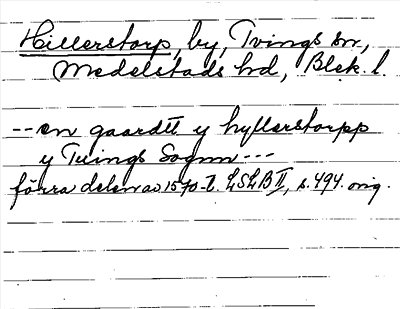 Hillerstorp, by, Tvings sn,
Medelstads hd, Blek. l.
-- en gaardt y hyllerstorpp
y Tvings Sognn ---
förra delen av 1570-t. LSLB II, s. 494. orig.